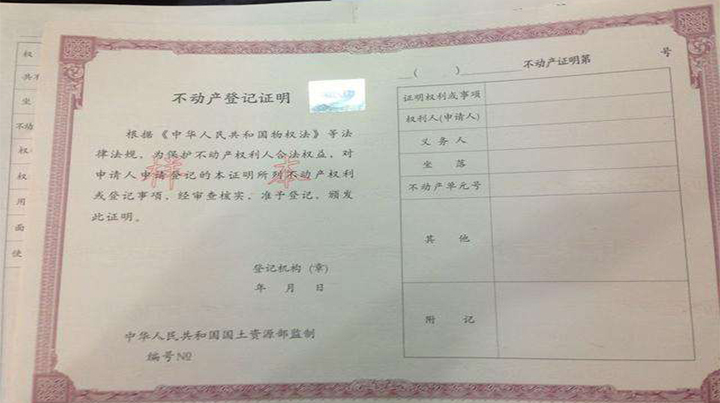 不动产登记证明
根据《中华人民共和国物权法》等法
律法规，为保护不动产权利人合法权益，对
申请人申请登记的本证明所列不动产权利
或登记事项，经审查核实，准予登记，颁发
此证明。
样本
登记机构（章）
年 月 日
中华人民共和国国土资源部监制
编号№
（ ） 不动产证明第 号
证明权利或事项
权利人(申请人)
义务人
坐落
不动产单元号
其他
附记
权
共
坐
不动
权
权
用
面
使